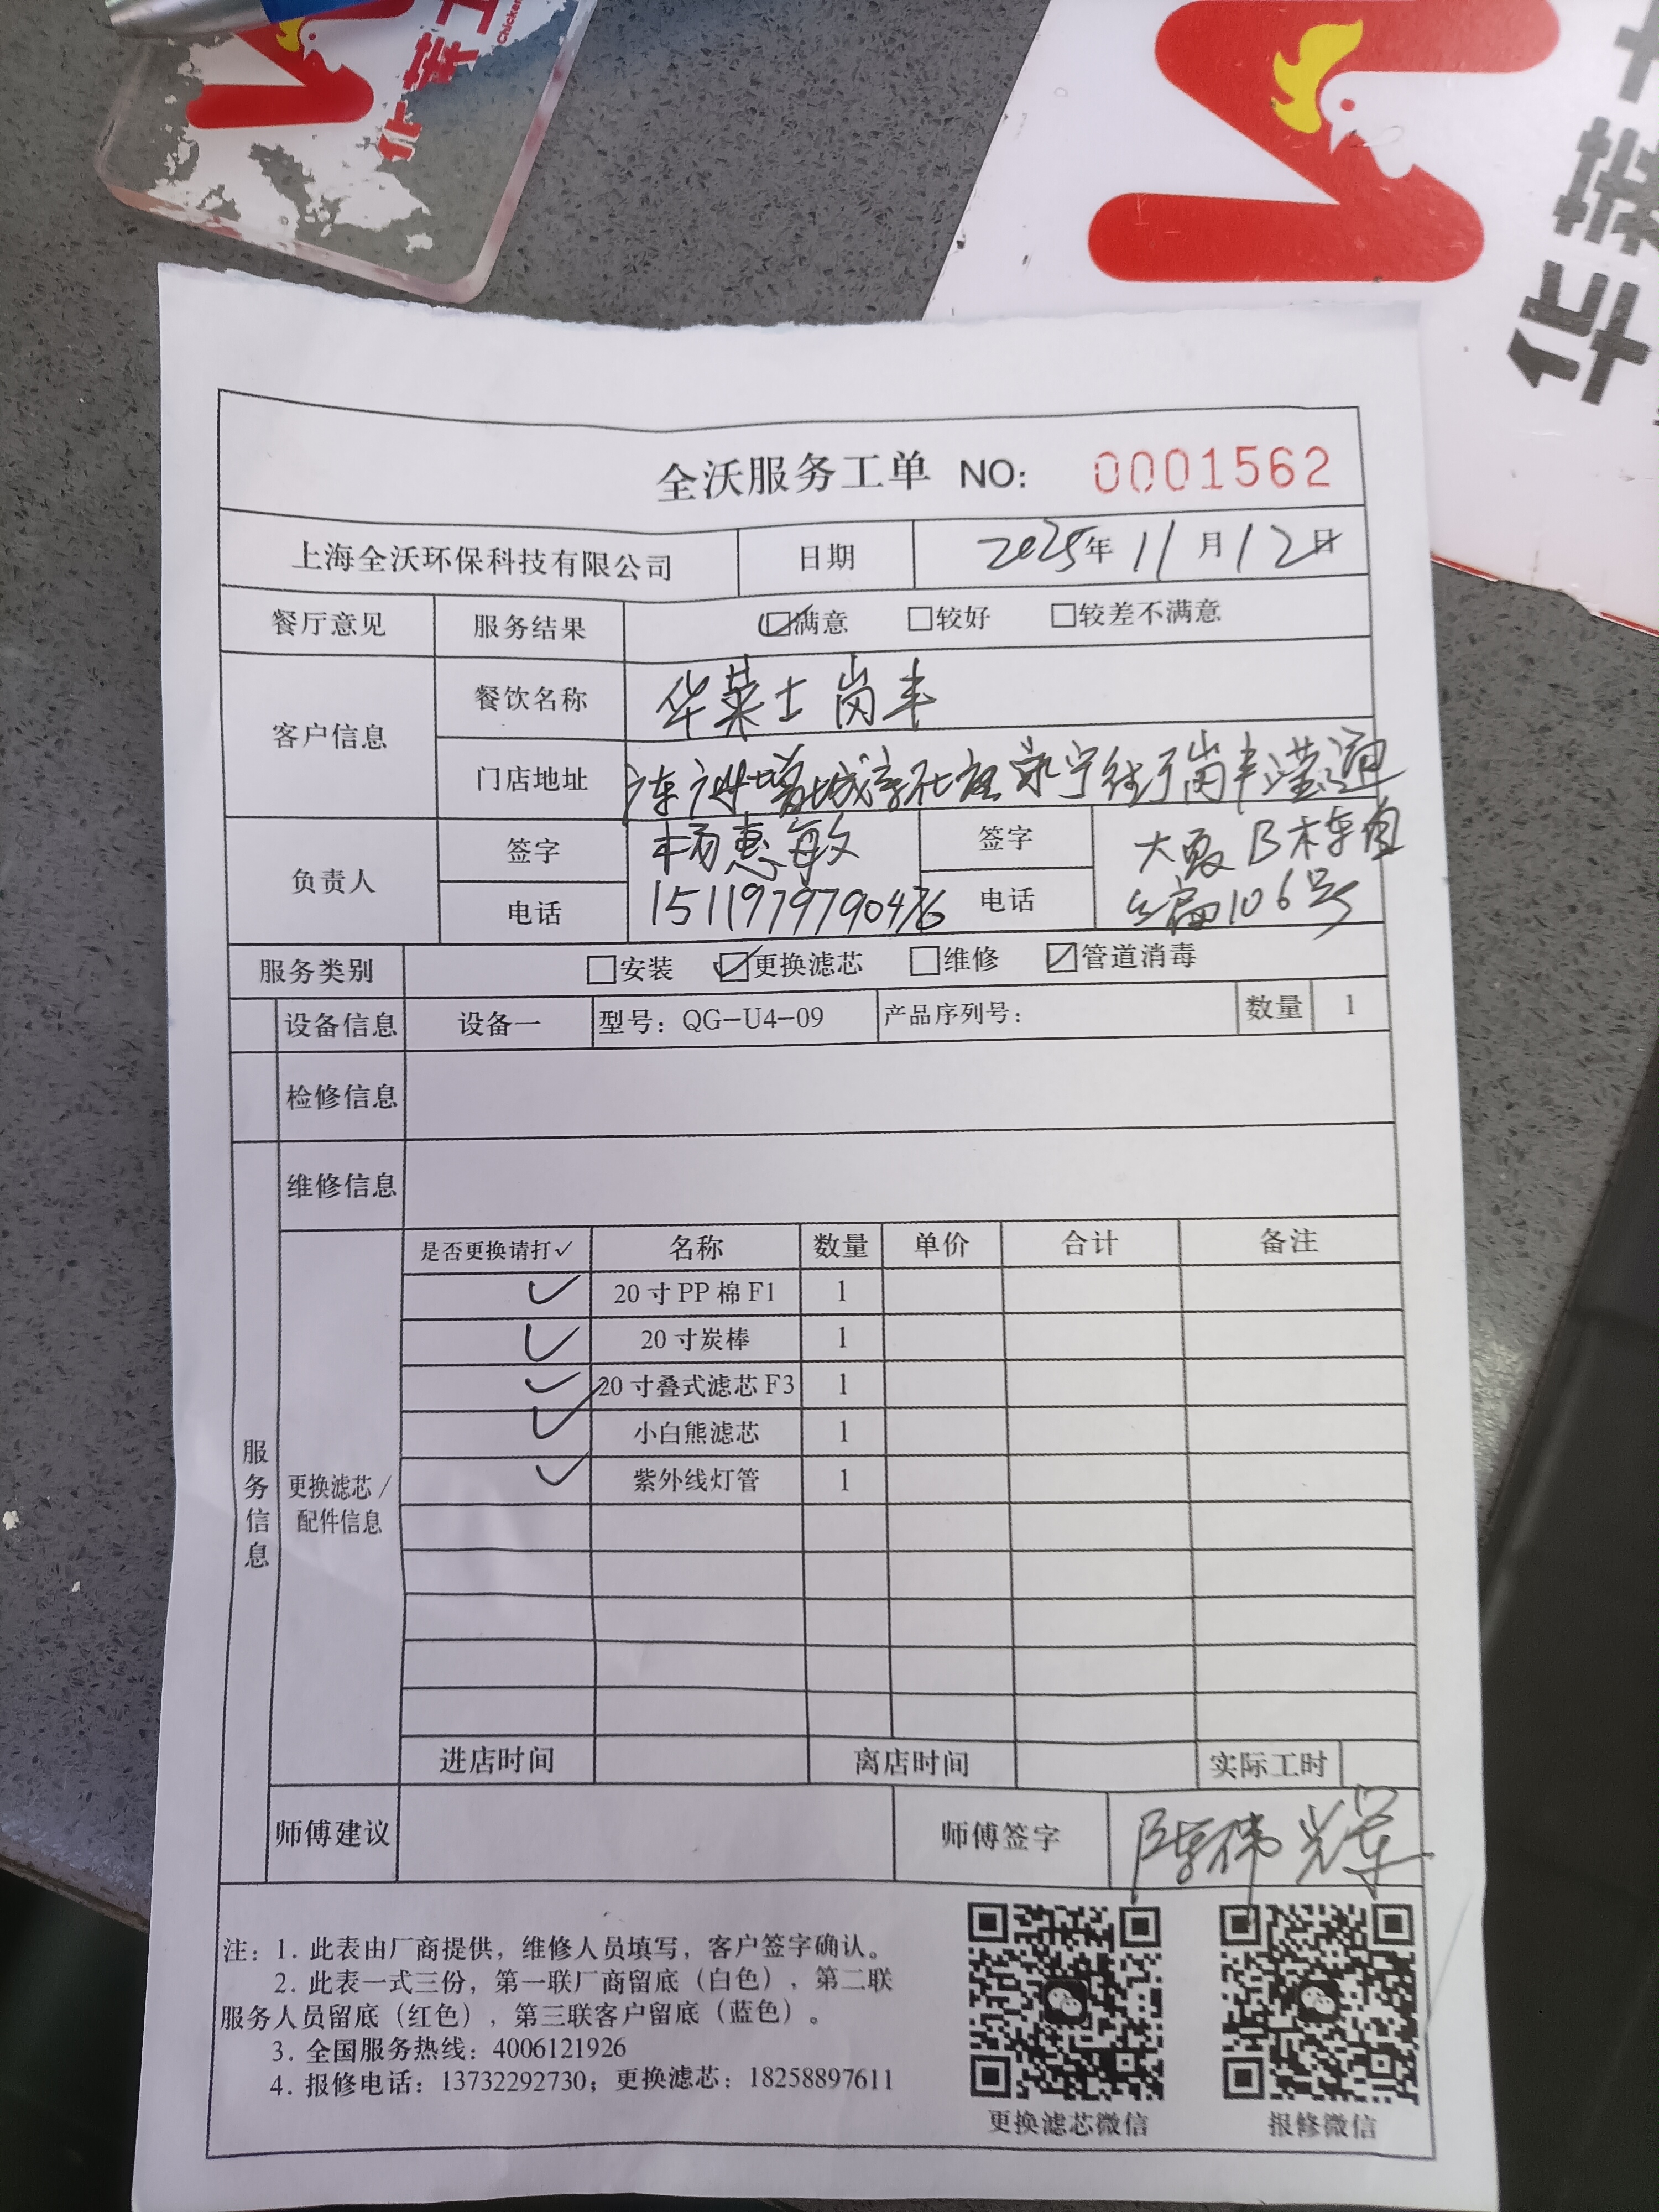 华莱士
Chicken
华莱士
全沃服务工单 NO: 0001562
上海全沃环保科技有限公司 日期 2025年11月12日
餐厅意见 服务结果 ☑满意 □较好 □较差不满意
客户信息 餐饮名称 华莱士岗丰
门店地址 广东广州增城新社区永宁街岗丰滢通
负责人 签字 杨惠敏 签字 大厦B栋自
电话 电话 编106号
服务类别 □安装 ☑更换滤芯 □维修 ☑管道消毒
设备信息 设备一 型号：QG-U4-09 产品序列号： 数量 1
检修信息
维修信息
服务信息
更换滤芯/配件信息
是否更换请打✓ 名称 数量 单价 合计 备注
✓ 20寸PP棉F1 1
✓ 20寸炭棒 1
✓ 20寸叠式滤芯F3 1
✓ 小白熊滤芯 1
✓ 紫外线灯管 1
进店时间 离店时间 实际工时
师傅建议 师傅签字 陈伟光荣
注：1. 此表由厂商提供，维修人员填写，客户签字确认。
2. 此表一式三份，第一联厂商留底（白色），第二联
服务人员留底（红色），第三联客户留底（蓝色）。
3. 全国服务热线：4006121926
4. 报修电话：13732292730；更换滤芯：18258897611
更换滤芯微信 报修微信